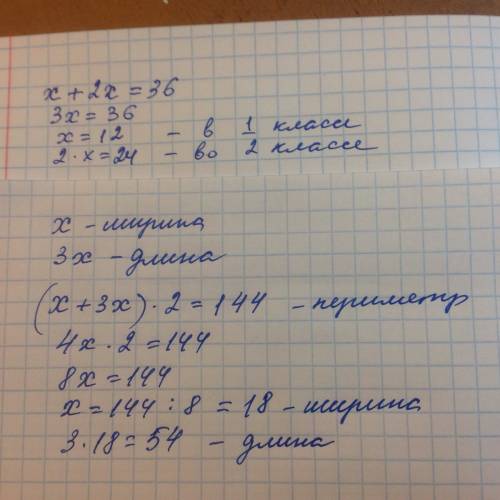 x + 2x = 36
3x = 36
x = 12 - в 1 классе
2 · x = 24 - во 2 классе
x - ширина
3x - длина
(x + 3x) · 2 = 144 - периметр
4x · 2 = 144
8x = 144
x = 144 : 8 = 18 - ширина
3 · 18 = 54 - длина